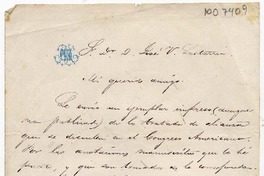 1007409
S. Dr. D. José V. Lastarria
Mi querido amigo:
Le envío un ejemplar impreso (aunque
no publicado) de los tratados de alianza
que se discuten en el Congreso Americano.
Por las anotaciones manuscritas que le
y que son tomadas de la